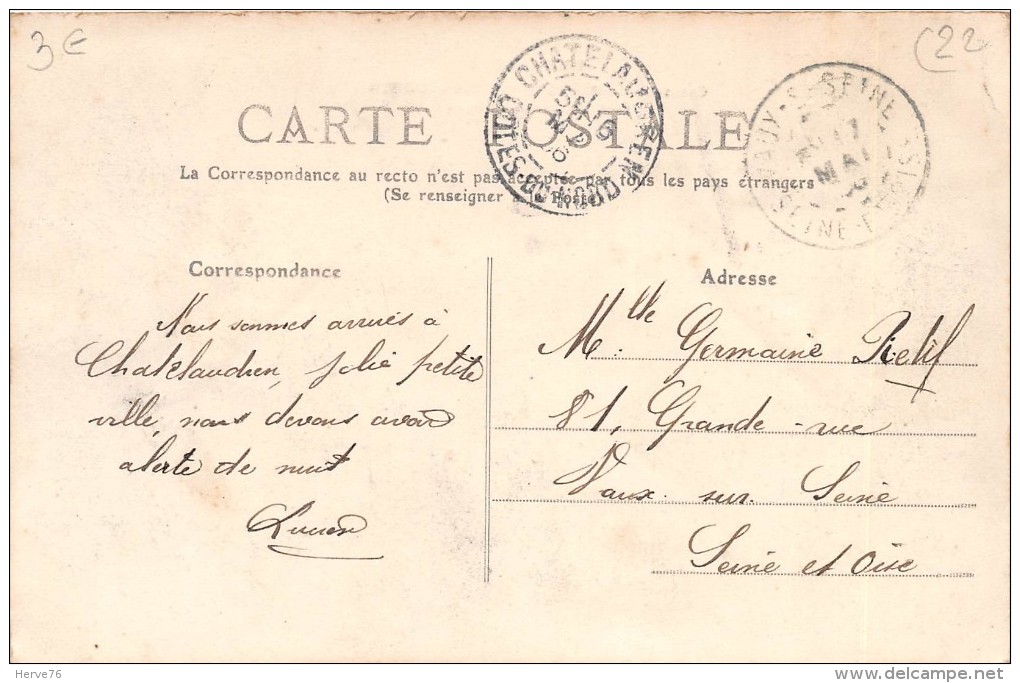 3€
(22
CHATELAUDREN
COTES-DU-NORD
CARTE POSTALE
VAUX-S-SEINE
MAI
La Correspondance au recto n'est pas acceptée par tous les pays étrangers
(Se renseigner à la Poste)
Correspondance
Nous sommes arrivés à
Chatelaudren, jolie petite
ville, nous devons avoir
alerte de nuit
Lucien
Adresse
Mlle Germaine Rétif
81, Grande-rue
Vaux sur Seine
Seine et Oise
Herve76
delcampe.net